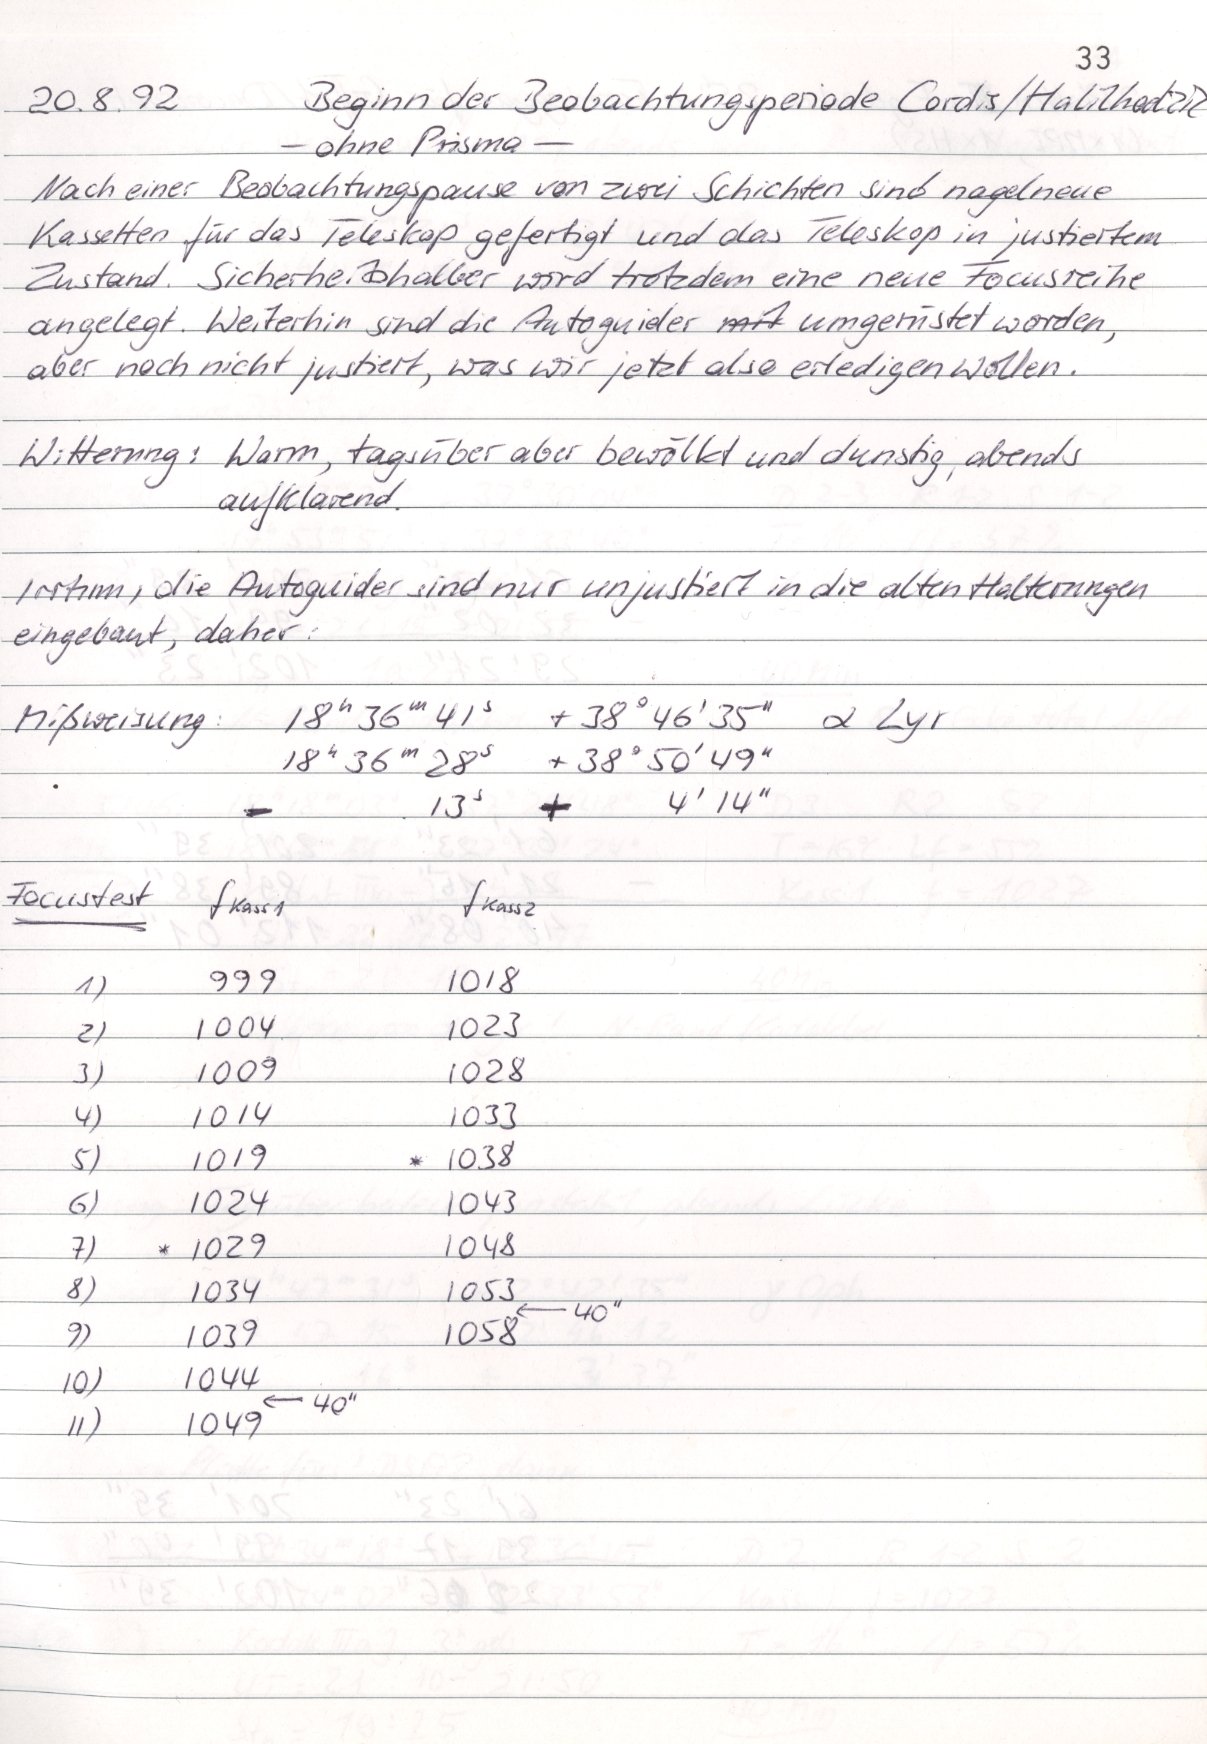 33
20.8.92 Beginn der Beobachtungsperiode Cordis/Halilhodzic
– ohne Prisma –
Nach einer Beobachtungspause von zwei Schichten sind nagelneue
Kassetten für das Teleskop gefertigt und das Teleskop in justiertem
Zustand. Sicherheitshalber wird trotzdem eine neue Focusreihe
angelegt. Weiterhin sind die Autoguider mit umgerüstet worden,
aber noch nicht justiert, was wir jetzt also erledigen wollen.
Witterung: Warm, tagsüber aber bewölkt und dunstig, abends
aufklarend.
Irrtum, die Autoguider sind nur unjustiert in die alten Halterungen
eingebaut, daher:
Mißweisung: 18ʰ 36ᵐ 41ˢ + 38° 46' 35" α Lyr
18ʰ 36ᵐ 28ˢ + 38° 50' 49"
– 13ˢ + 4' 14"
Focustest f Kass1 f Kass2
1) 999 1018
2) 1004 1023
3) 1009 1028
4) 1014 1033
5) 1019 * 1038
6) 1024 1043
7) * 1029 1048
8) 1034 1053
← 40"
9) 1039 1058
10) 1044
← 40"
11) 1049